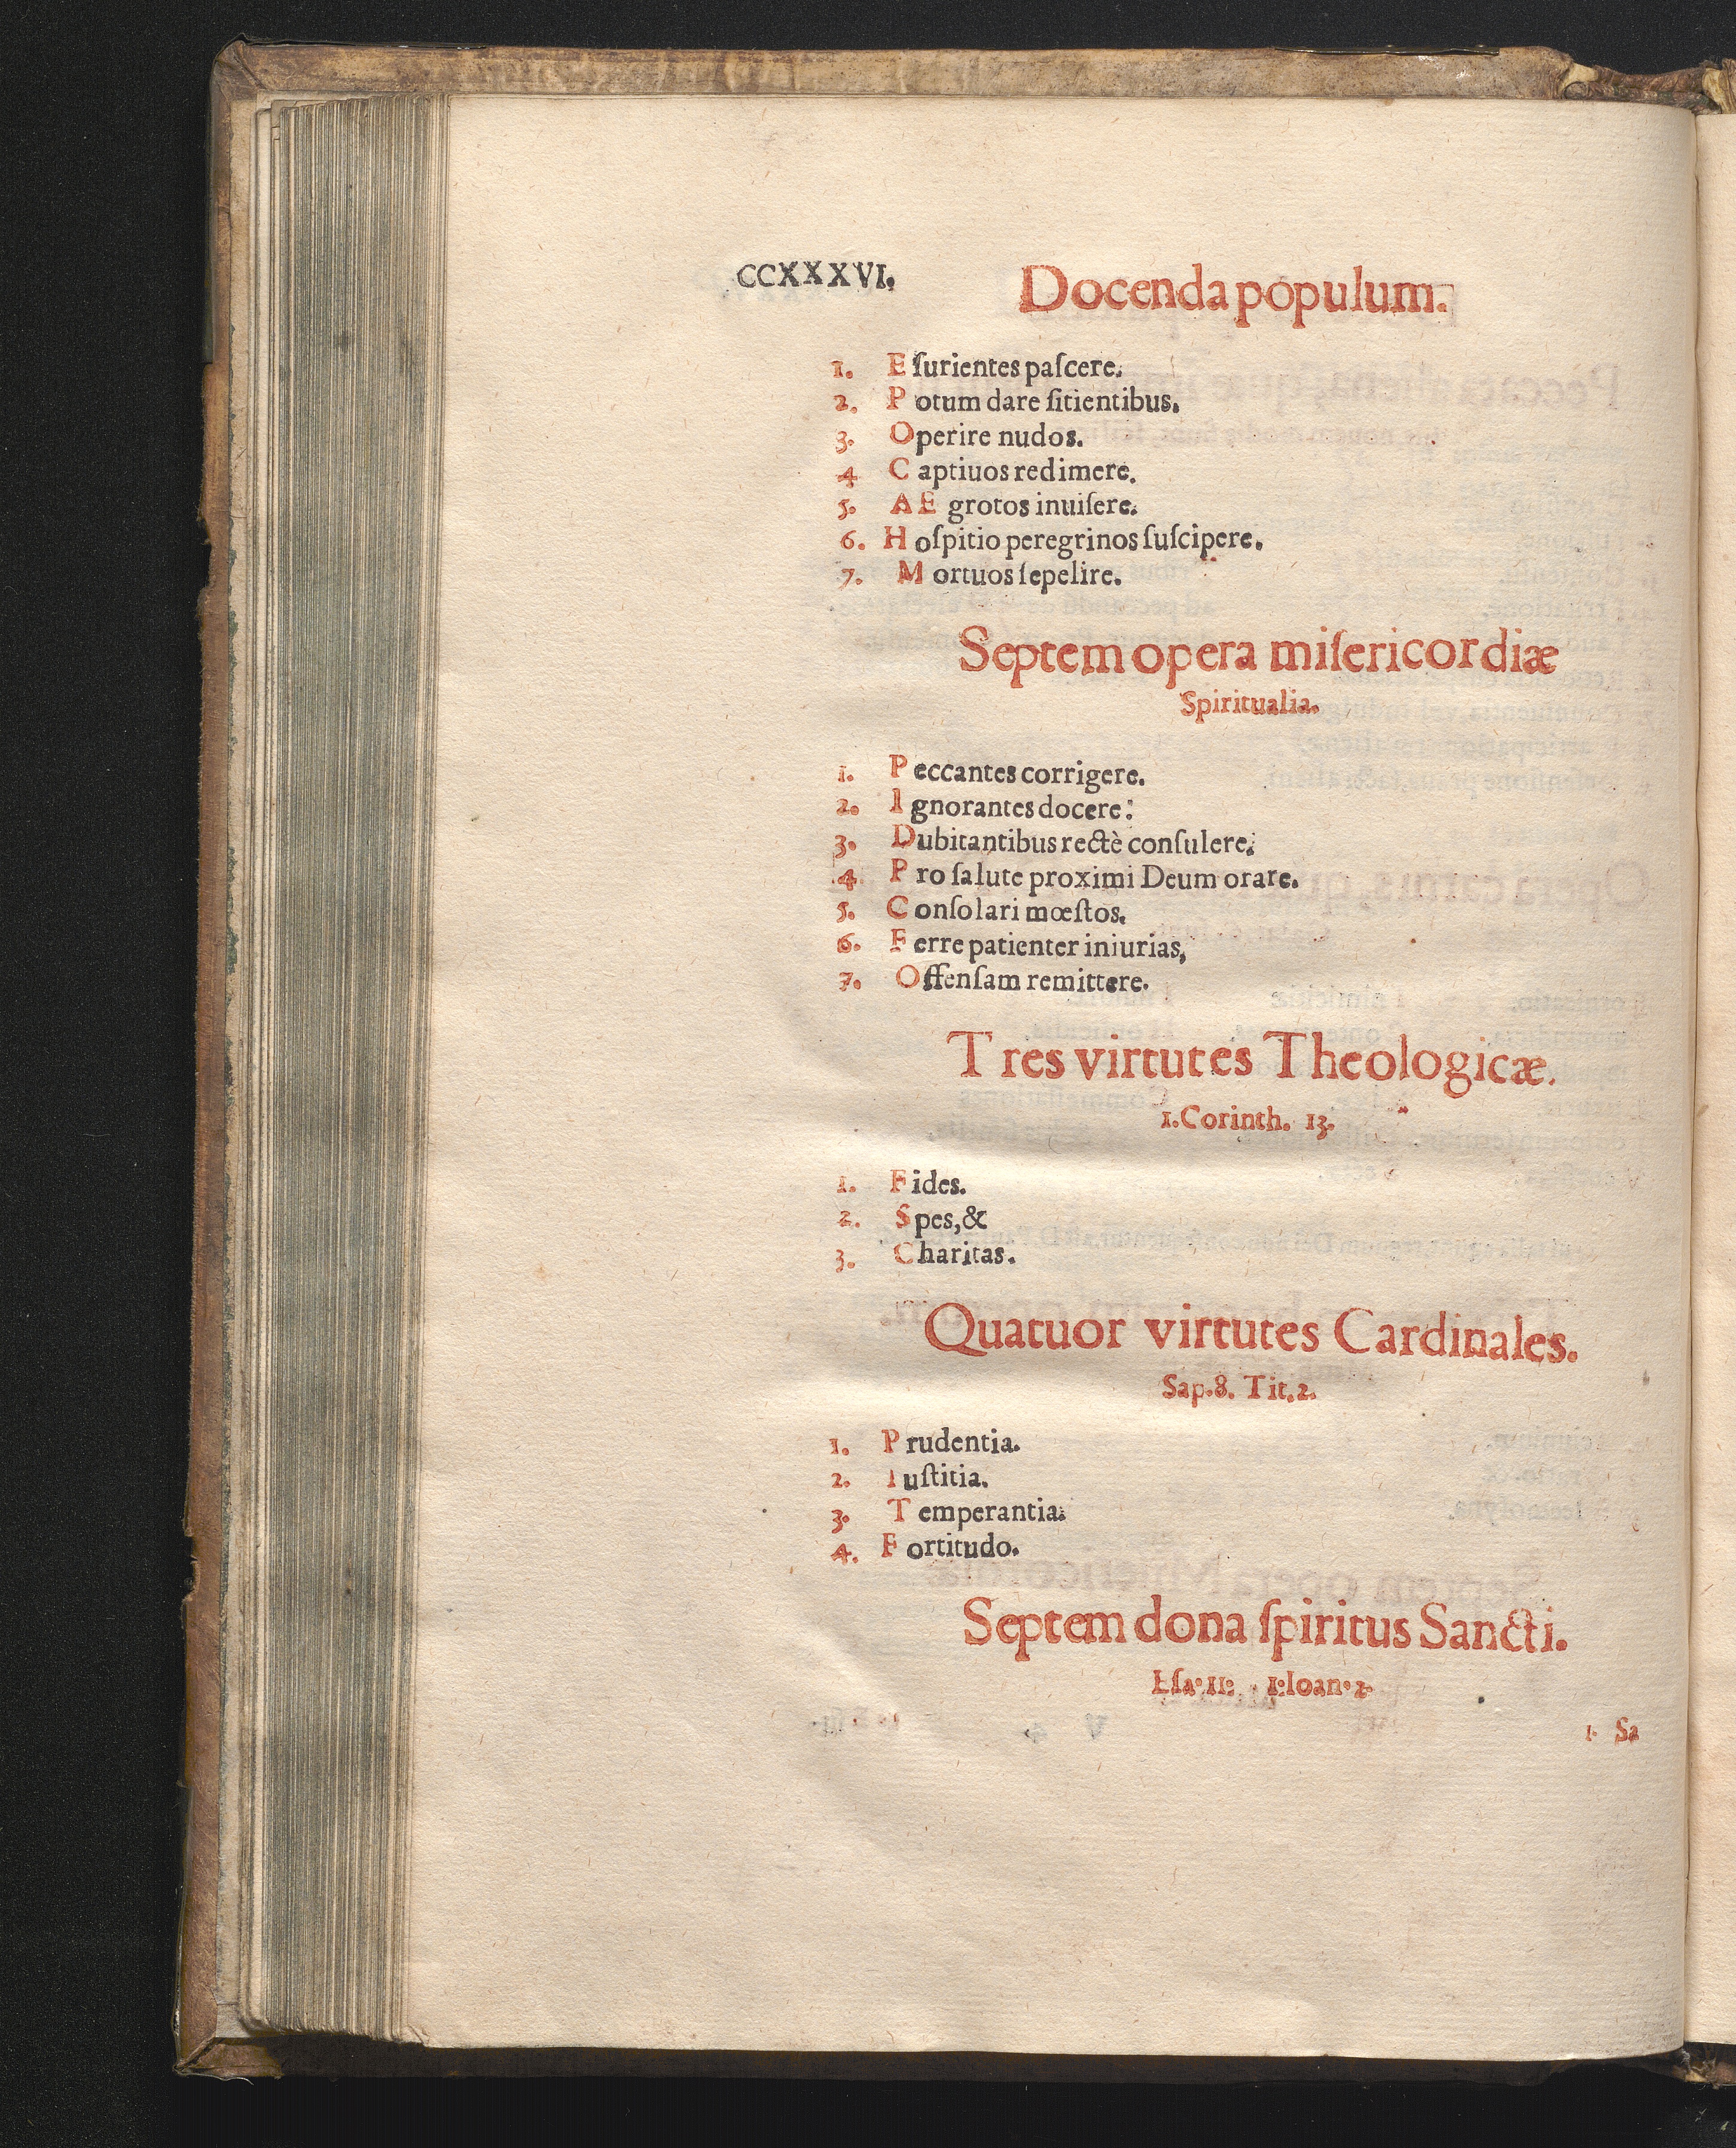 CCXXXVI. Docenda populum.
1. Eſurientes paſcere.
2. Potum dare ſitientibus.
3. Operire nudos.
4 Captiuos redimere.
5. AEgrotos inuiſere.
6. Hoſpitio peregrinos ſuſcipere.
7. Mortuos ſepelire.
Septem opera miſericordiæ
Spiritualia.
1. Peccantes corrigere.
2. Ignorantes docere:
3. Dubitantibus rectè conſulere.
4 Pro ſalute proximi Deum orare.
5. Conſolari mœſtos.
6. Ferre patienter iniurias,
7. Offenſam remittere.
Tres virtutes Theologicæ.
1. Corinth. 13.
1. Fides.
2. Spes, &
3. Charitas.
Quatuor virtutes Cardinales.
Sap. 8. Tit. 2.
1. Prudentia.
2. Iuſtitia.
3. Temperantia.
4. Fortitudo.
Septem dona ſpiritus Sancti.
Eſa. 11: 1: Ioan. 2.
1. Sa